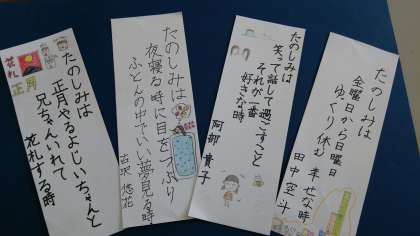 花札
正月
たのしみは
正月やるよじいちゃんと
兄ちゃんいれて
花札する時
たのしみは
夜寝る時に目をつぶり
ふとんの中でいい夢見る時
古沢悠花
たのしみは
笑って話して過ごすこと
それが一番
好きな時
阿部貴子
たのしみは
金曜日から日曜日
ゆっくり休む
幸せな時
田中空斗